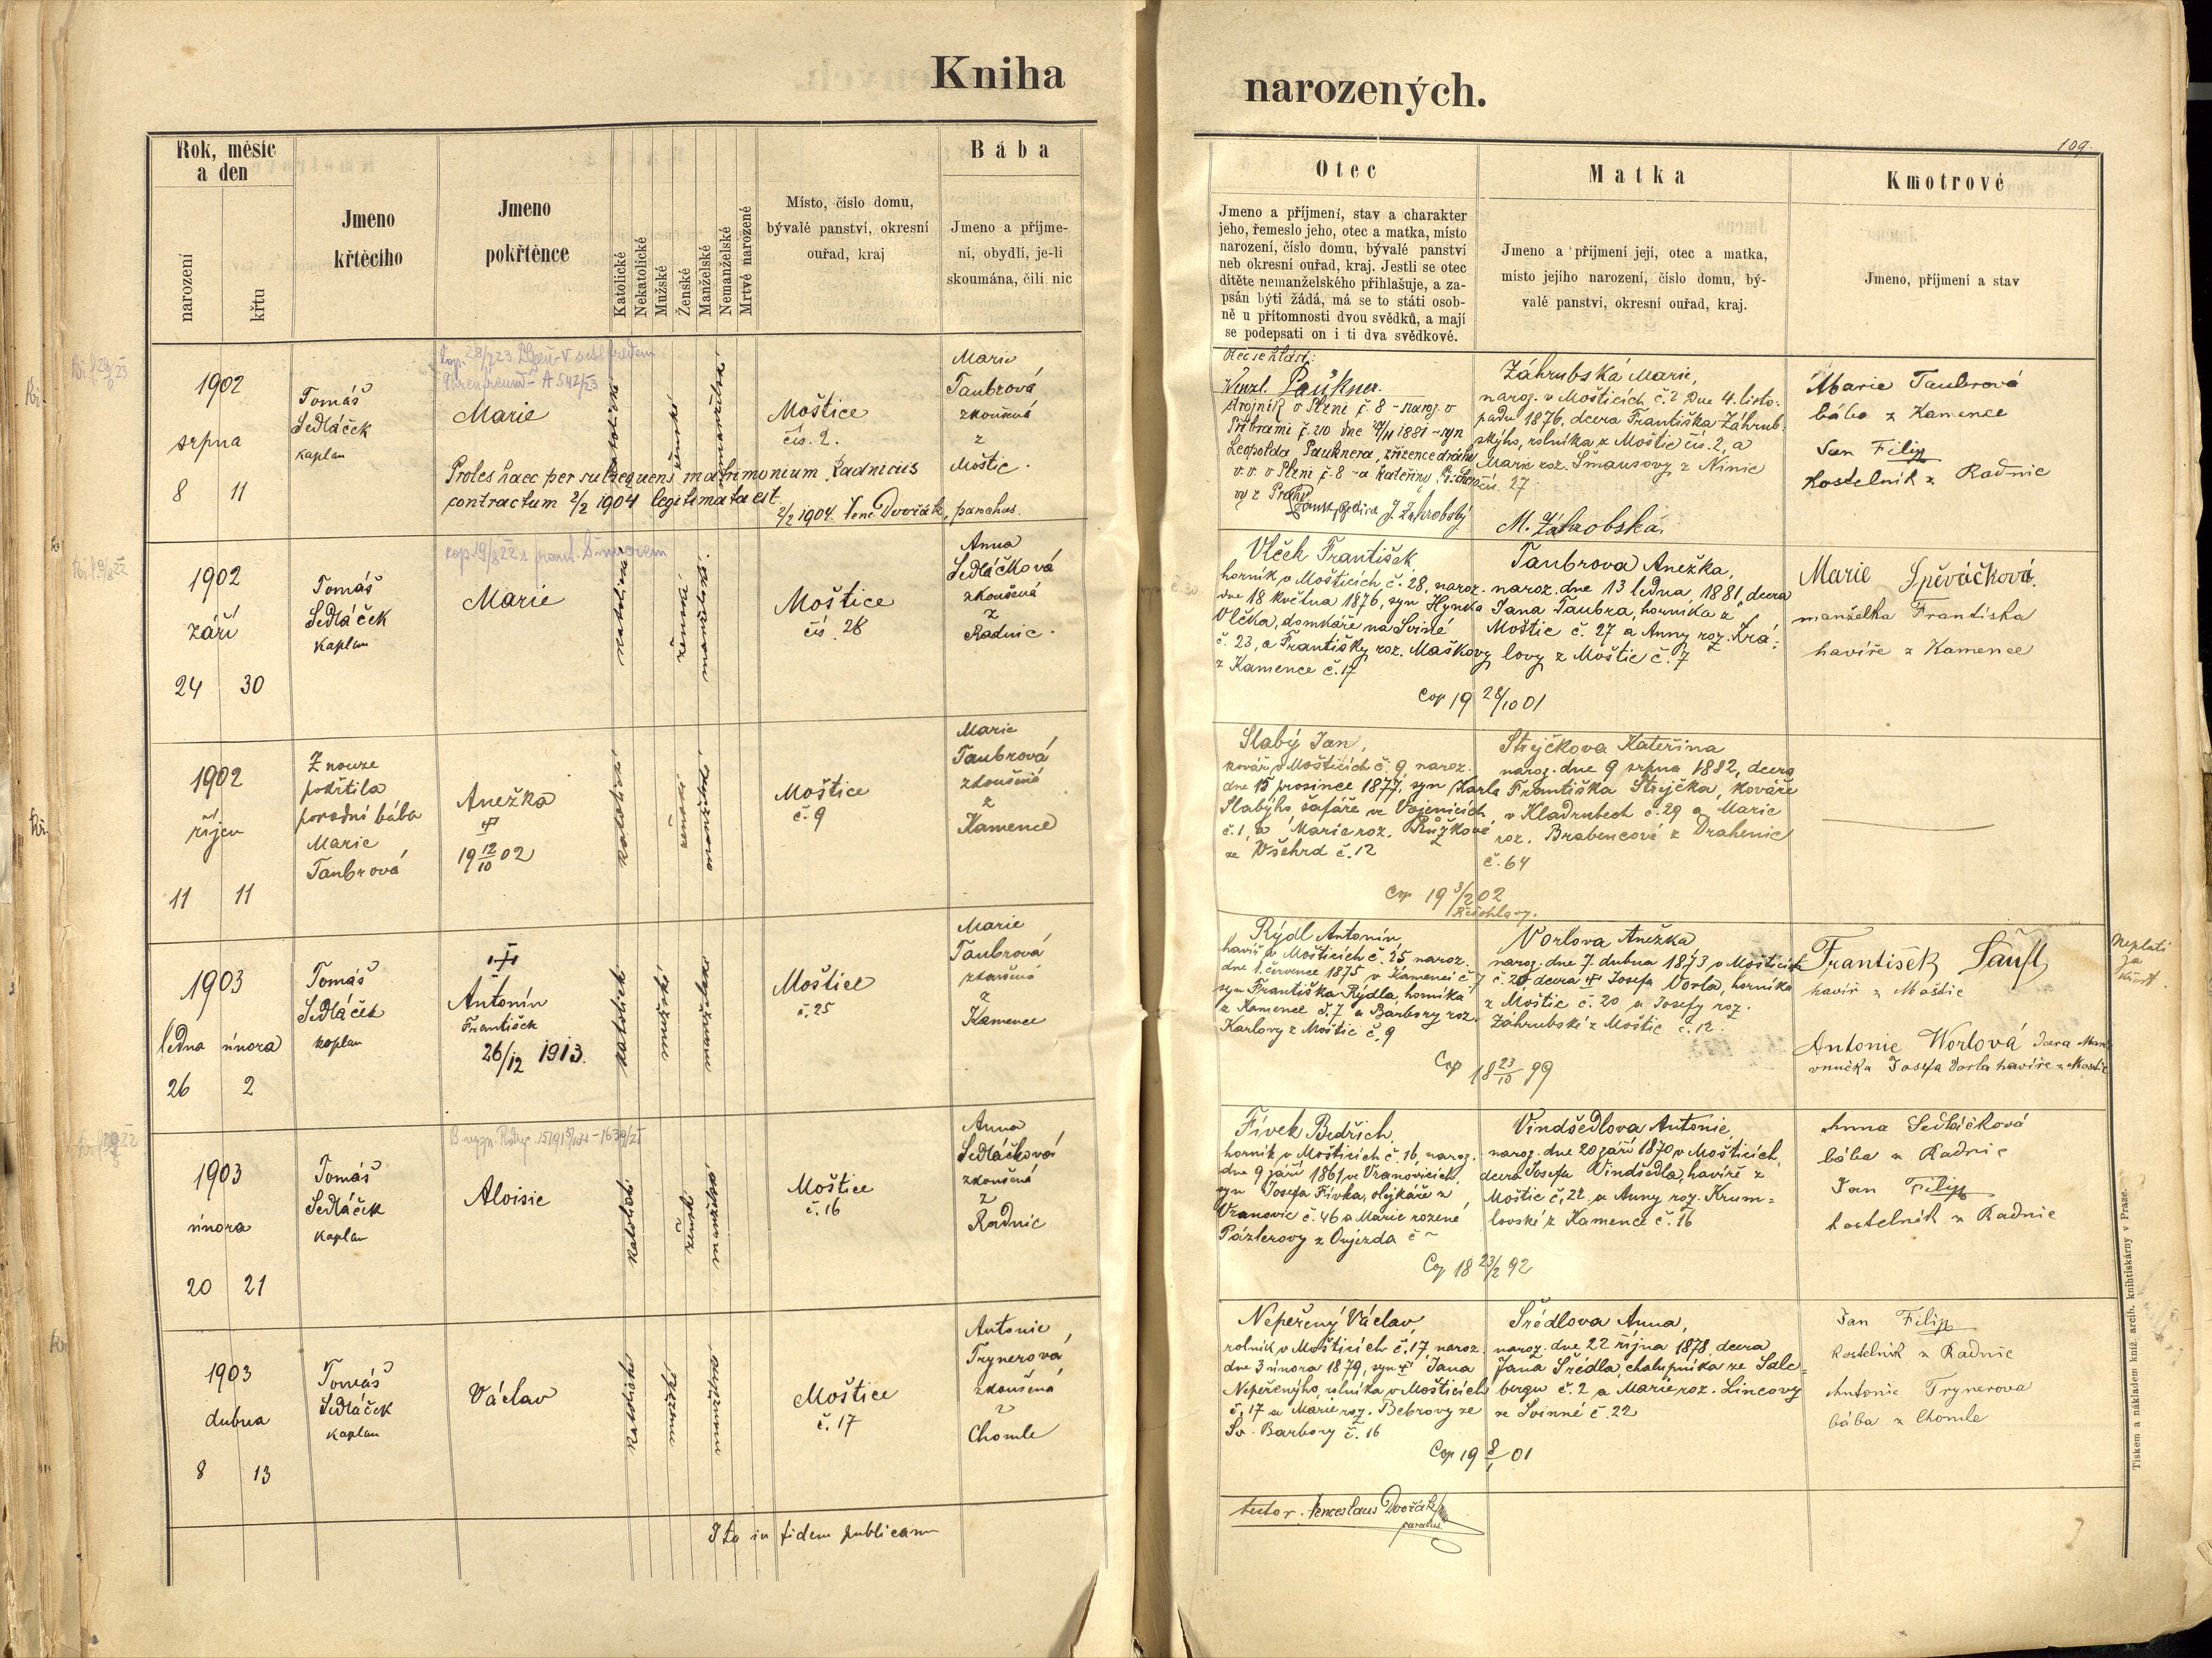 Kniha narozených.
109.
Rok, měsíc
a den
narození
křtu
Jmeno
křtěcího
Jmeno
pokřtěnce
Katolické
Nekatolické
Mužské
Ženské
Manželské
Nemanželské
Mrtvě narozené
Místo, číslo domu,
bývalé panství, okresní
ouřad, kraj
Bába
Jmeno a příjme-
ní, obydlí, je-li
skoumána, čili nic
Otec
Jmeno a příjmení, stav a charakter
jeho, řemeslo jeho, otec a matka, místo
narození, číslo domu, bývalé panství
neb okresní ouřad, kraj. Jestli se otec
dítěte nemanželského přihlašuje, a za-
psán býti žádá, má se to státi osob-
ně u přítomnosti dvou svědků, a mají
se podepsati on i ti dva svědkové.
Matka
Jmeno a příjmení její, otec a matka,
místo jejího narození, číslo domu, bý-
valé panství, okresní ouřad, kraj.
Kmotrové
Jmeno, příjmení a stav
1902
srpna
8 11
Tomáš
Sedláček
kaplan
Marie
Proles haec per subsequens matrimonium Radnicus
contractum 2/2 1904 legitimata est.
2/2 1904. Venc. Dvořák, parochus.
Moštice
čís. 2.
Marie
Taubrová
zkoušená
z
Moštic.
Otec se hlásí:
Wenzl. Paukner.
strojník v Plzni č. 8 - naroz. v
Příbrami č. 210 dne 1881 - syn
Leopolda Pauknera, zřízence dráhy
v. v. v Plzni č. 8 - a Kateřiny
z Prahy
Záhrubská Marie,
naroz. v Mošticích č. 2 dne 4. listo-
padu 1876, dcera Františka Záhrub-
ského, rolníka z Moštic čís. 2, a
Marie roz. Šmausovy z Ninic
čís. 27
M. Záhrobská.
Marie Taubrová
bába z Kamence
Jan Filip
kostelník z Radnic
1902
září
24 30
Tomáš
Sedláček
kaplan
Marie
katolické
ženské
manželské
Moštice
čís. 28
Anna
Sedláčková
zkoušená
z
Radnic.
Vlček František
horník v Mošticích č. 28, naroz.
dne 18 května 1876, syn Hynka
Vlčka, domkáře na Sviné
č. 23, a Františky roz. Maškovy
z Kamence č. 17
Taubrova Anežka,
naroz. dne 13 ledna 1881, dcera
Jana Taubra, horníka z
Moštic č. 27 a Anny roz. Krá-
lovy z Moštic č. 7
Cop 19 28/10 01
Marie Spěváčková.
manželka Františka
havíře z Kamence
1902
říjen
11 11
Z nouze
pokřtila
porodní bába
Marie
Taubrová
Anežka
19 12/10 02
katolické
ženské
manželské
Moštice
č. 9
Marie
Taubrová
zkoušená
z
Kamence
Slabý Jan,
kovář v Mošticích č. 9 naroz.
dne 15 prosince 1877, syn Karla
Slabýho, šafáře ve Vojenicích,
č. 1, a Marie roz. Růžkové
ze Všehrd č. 12
Strejčkova Kateřina
naroz. dne 9 srpna 1882, dcera
Františka Strejčka, kováře
v Kladrubech č. 29 a Marie
roz. Brabencové z Drahenic
č. 64
Cop 19 3/2 02
1903
ledna února
26 2
Tomáš
Sedláček
kaplan
Antonín
František
26/12 1913.
katolické
mužské
manželské
Moštice
č. 25
Marie
Taubrová
zkoušená
z
Kamence
Rýdl Antonín
havíř v Mošticích č. 25 naroz.
dne 1. července 1875 v Kamenci č. 7
syn Františka Rýdla, horníka
z Kamence č. 7 a Barbory roz.
Karlovy z Moštic č. 9
Vorlova Anežka
naroz. dne 7. dubna 1873 v Mošticích
č. 20, dcera Josefa Vorla, horníka
z Moštic č. 20 a Josefy roz.
Záhrubské z Moštic č. 12.
Cop 18 23/10 99
František Šaufl
havíř z Moštic
Antonie Worlová dcera
vnučka Josefa Vorla havíře z Moštic
Neplatí
za
křest.
1903
února
20 21
Tomáš
Sedláček
kaplan
Aloisie
katolické
ženské
manželské
Moštice
č. 16
Anna
Sedláčková
zkoušená
z
Radnic
Fívek Bedřich,
horník v Mošticích č. 16, naroz.
dne 9 září 1861 ve Vranovicích,
syn Josefa Fívka, olejkáře z
Vranovic č. 46 a Marie rozené
Pázlerovy z Oujezda č ~
Vindšedlova Antonie,
naroz. dne 20 září 1870 v Mošticích,
dcera Josefa Vindšedla, havíře z
Moštic č. 22 a Anny roz. Krum-
lovské z Kamence č. 16
Cop 18 23/2 92
Anna Sedláčková
bába z Radnic
Jan Filip
kostelník z Radnic
1903
dubna
8 13
Tomáš
Sedláček
kaplan
Václav
katolické
mužské
manželské
Moštice
č. 17
Antonie
Trynerová
zkoušená
z
Chomle
Nepeřený Václav,
rolník v Mošticích č. 17 naroz.
dne 3 února 1879, syn Jana
Nepeřenýho, rolníka v Mošticích
č. 17 a Marie roz. Bebrovy ze
Sv. Barbory č. 16
Šrédlova Anna,
naroz. dne 22 října 1878, dcera
Jana Šrédla, chalupníka ze Salc-
bergu č. 2 a Marie roz. Lincovy
ze Svinné č. 22
Cop 19 8/1 01
Jan Filip
kostelník z Radnic
Antonie Trynerova
bába z Chomle
Ita in fidem publicam
testor. Venceslaus Dvořák
parochus.
Tiskem a nákladem kníž. arcib. knihtiskárny v Praze.